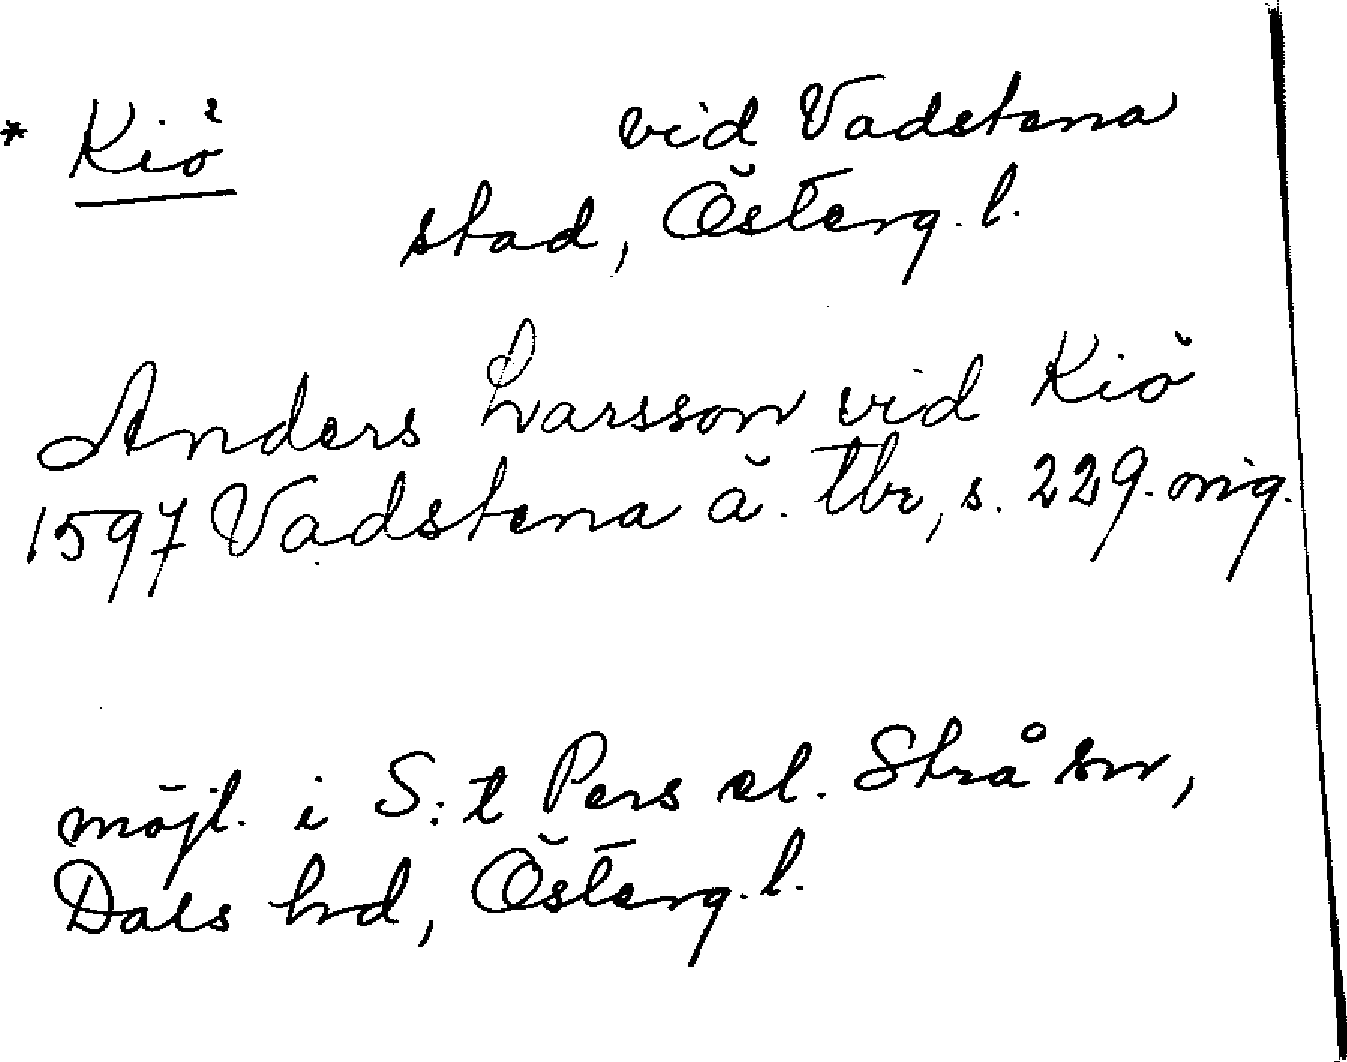 * Kiö vid Vadstena
stad, Österg. l.
Anders Larsson vid Kiö
1597 Vadstena ä. tbr, s. 229. orig.
möjl. i S:t Pers el. Strå sn,
Dals hd, Österg. l.